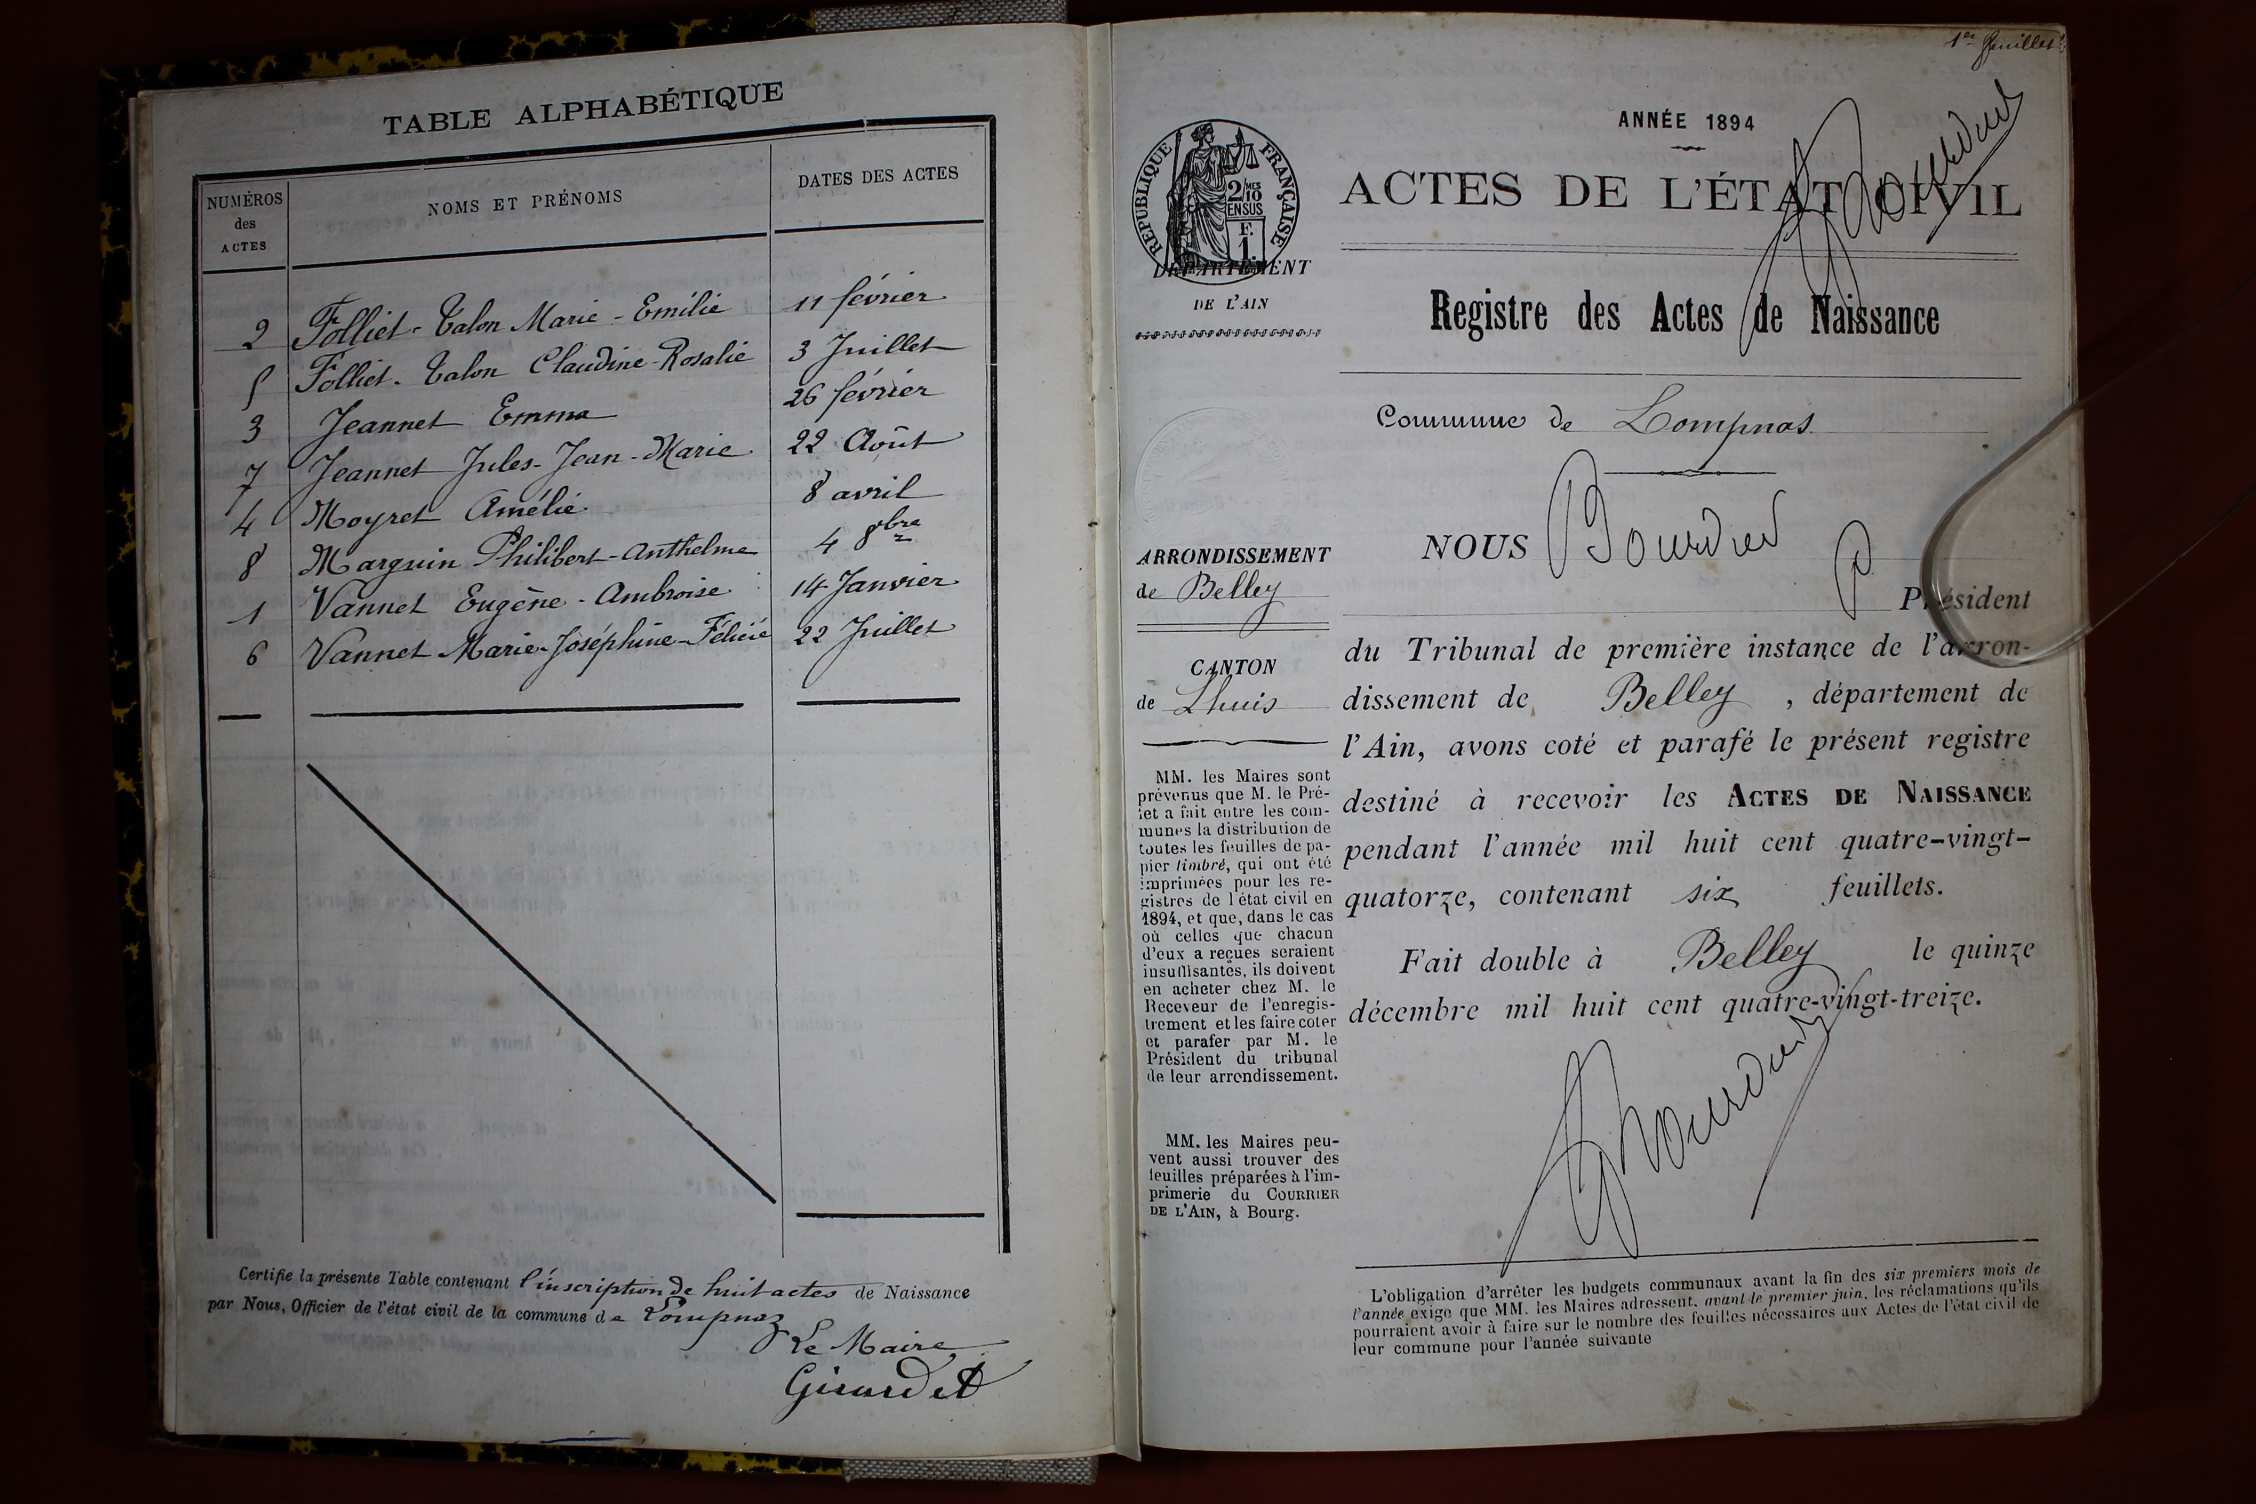 TABLE ALPHABÉTIQUE
NUMÉROS
des
ACTES
NOMS ET PRÉNOMS
DATES DES ACTES
2 Folliet-Talon Marie-Emilie 11 février
5 Folliet-Talon Claudine-Rosalie 3 Juillet
3 Jeannet Emma 26 février
7 Jeannet Jules-Jean-Marie 22 Août
4 Moyret Amélie 8 avril
8 Marguin Philibert-Anthelme 4 8bre
1 Vannet Eugène-Ambroise 14 Janvier
6 Vannet Marie-Joséphine-Félicie 22 Juillet
Certifie la présente Table contenant l'inscription de huit actes de Naissance
par Nous, Officier de l'état civil de la commune de Lompnaz
Le Maire
Girardet
1er feuillet
ANNÉE 1894
ACTES DE L'ÉTAT CIVIL
Registre des Actes de Naissance
RÉPUBLIQUE FRANÇAISE
2/10MES
EN SUS
F.
1.
DÉPARTEMENT
DE L'AIN
Commune de Lompnas.
ARRONDISSEMENT
de Belley
CANTON
de Lhuis
MM. les Maires sont
prévenus que M. le Pré-
fet a fait entre les com-
munes la distribution de
toutes les feuilles de pa-
pier timbré, qui ont été
imprimées pour les re-
gistres de l'état civil en
1894, et que, dans le cas
où celles que chacun
d'eux a reçues seraient
insuffisantes, ils doivent
en acheter chez M. le
Receveur de l'enregis-
trement et les faire coter
et parafer par M. le
Président du tribunal
de leur arrondissement.
MM. les Maires peu-
vent aussi trouver des
feuilles préparées à l'im-
primerie du COURRIER
DE L'AIN, à Bourg.
NOUS Bourdin
P. Président
du Tribunal de première instance de l'arron-
dissement de Belley, département de
l'Ain, avons coté et parafé le présent registre
destiné à recevoir les ACTES DE NAISSANCE
pendant l'année mil huit cent quatre-vingt-
quatorze, contenant six feuillets.
Fait double à Belley le quinze
décembre mil huit cent quatre-vingt-treize.
L'obligation d'arrêter les budgets communaux avant la fin des six premiers mois de
l'année exige que MM. les Maires adressent, avant le premier juin, les réclamations qu'ils
pourraient avoir à faire sur le nombre des feuilles nécessaires aux Actes de l'état civil de
leur commune pour l'année suivante